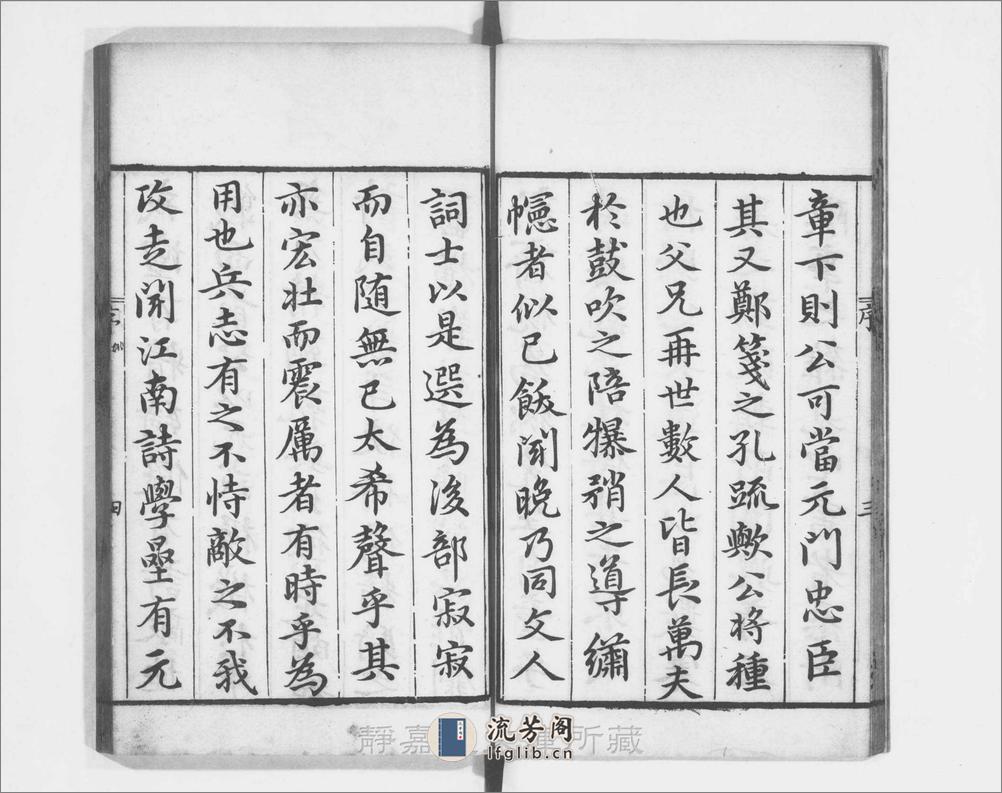 章下則公可當元門忠臣
其又鄭箋之孔疏歟公將種
也父兄再世數人皆長萬夫
於鼓吹之陪犦矟之導繡
幰者似已飯聞晚乃同文人
詞士以是選為後部寂寂
而自随無已太希聲乎其
亦宏壯而震厲者有時乎為
用也兵志有之不恃敵之不我
攻走聞江南詩學壘有元
序
三
四
靜嘉 所藏
流芳阁
lfglib.cn